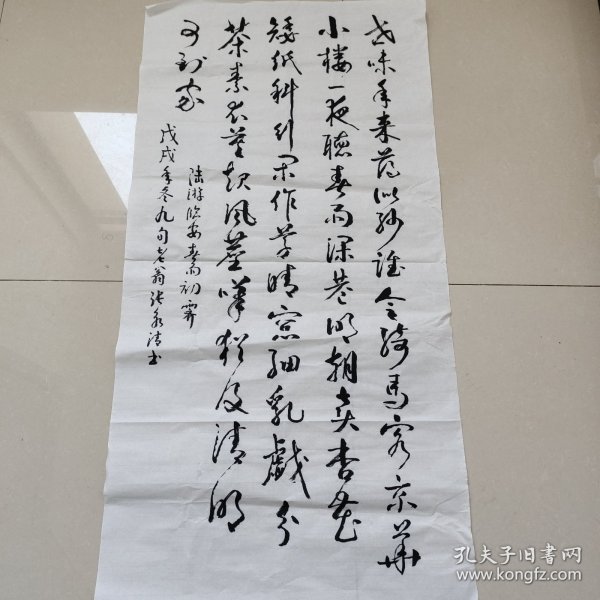 世味年来薄似纱谁令骑马客京华
小楼一夜聽春雨深巷明朝卖杏花
矮纸斜行闲作草晴窗细乳戲分
茶素衣莫起风塵嘆犹及清明
可到家
陆游临安春雨初霁
戊戌年冬九旬老翁张永清书
孔夫子旧書网
www.kongfz.com